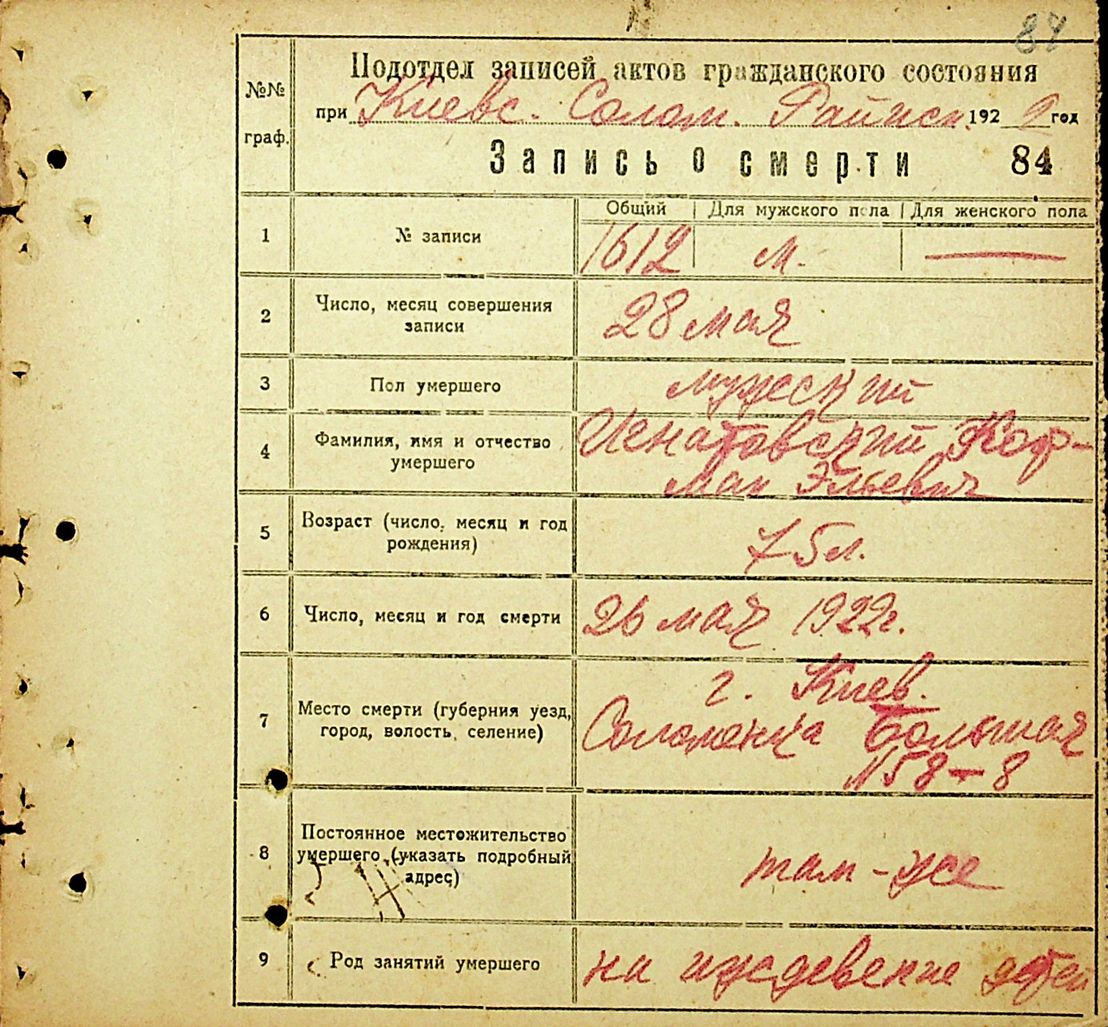 84
№№ граф.
Подотдел записей актов гражданского состояния
при Киевс. Солом. Райиск. 1922 год
Запись о смерти 84
Общий | Для мужского пола | Для женского пола
1 № записи 1612 м. —
2 Число, месяц совершения
записи 28 мая
3 Пол умершего мужеский
4 Фамилия, имя и отчество
умершего Игнатовский Коф-
ман Эльевич
5 Возраст (число, месяц и год
рождения) 75 л.
6 Число, месяц и год смерти 26 мая 1922 г.
7 Место смерти (губерния уезд,
город, волость, селение) г. Киев.
Соломенка Большая
N 58-8
8 Постоянное местожительство
умершего (указать подробный
адрес) там-же
9 Род занятий умершего на иждевение детей